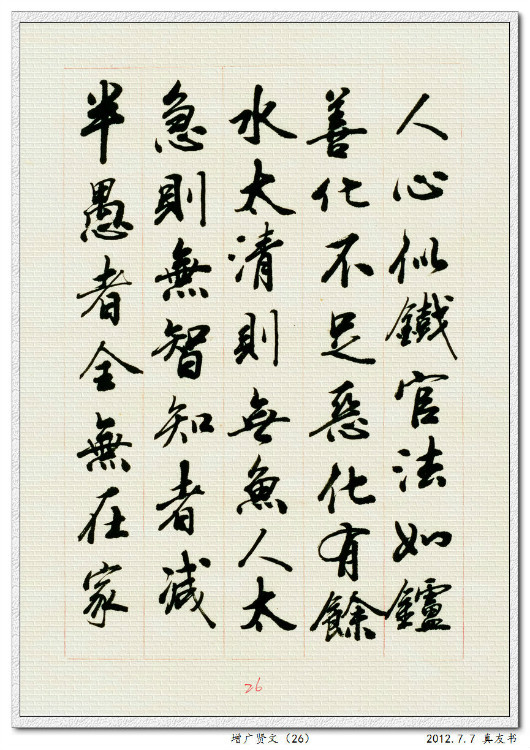 人心似鐵官法如鑪
善化不足惡化有餘
水太清則無魚人太
急則無智知者減
半愚者全無在家
26
增广贤文（26）
2012.7.7 真友书